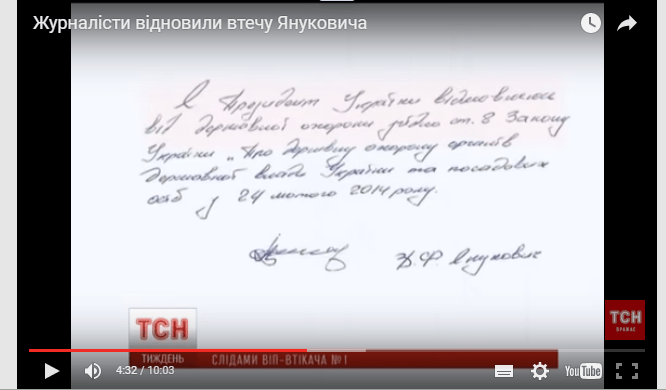 Журналісти відновили втечу Януковича
Я Президент України відмовляюсь
від державної охорони згідно ст. 8 Закону
України „Про державну охорону органів
державної влади України та посадових
осіб з 24 лютого 2014 року.
В.Ф. Янукович
ТСН
ТИЖДЕНЬ
СЛІДАМИ ВІП-ВТІКАЧА №1
ТСН
ВРАЖАЄ
4:32 / 10:03
YouTube